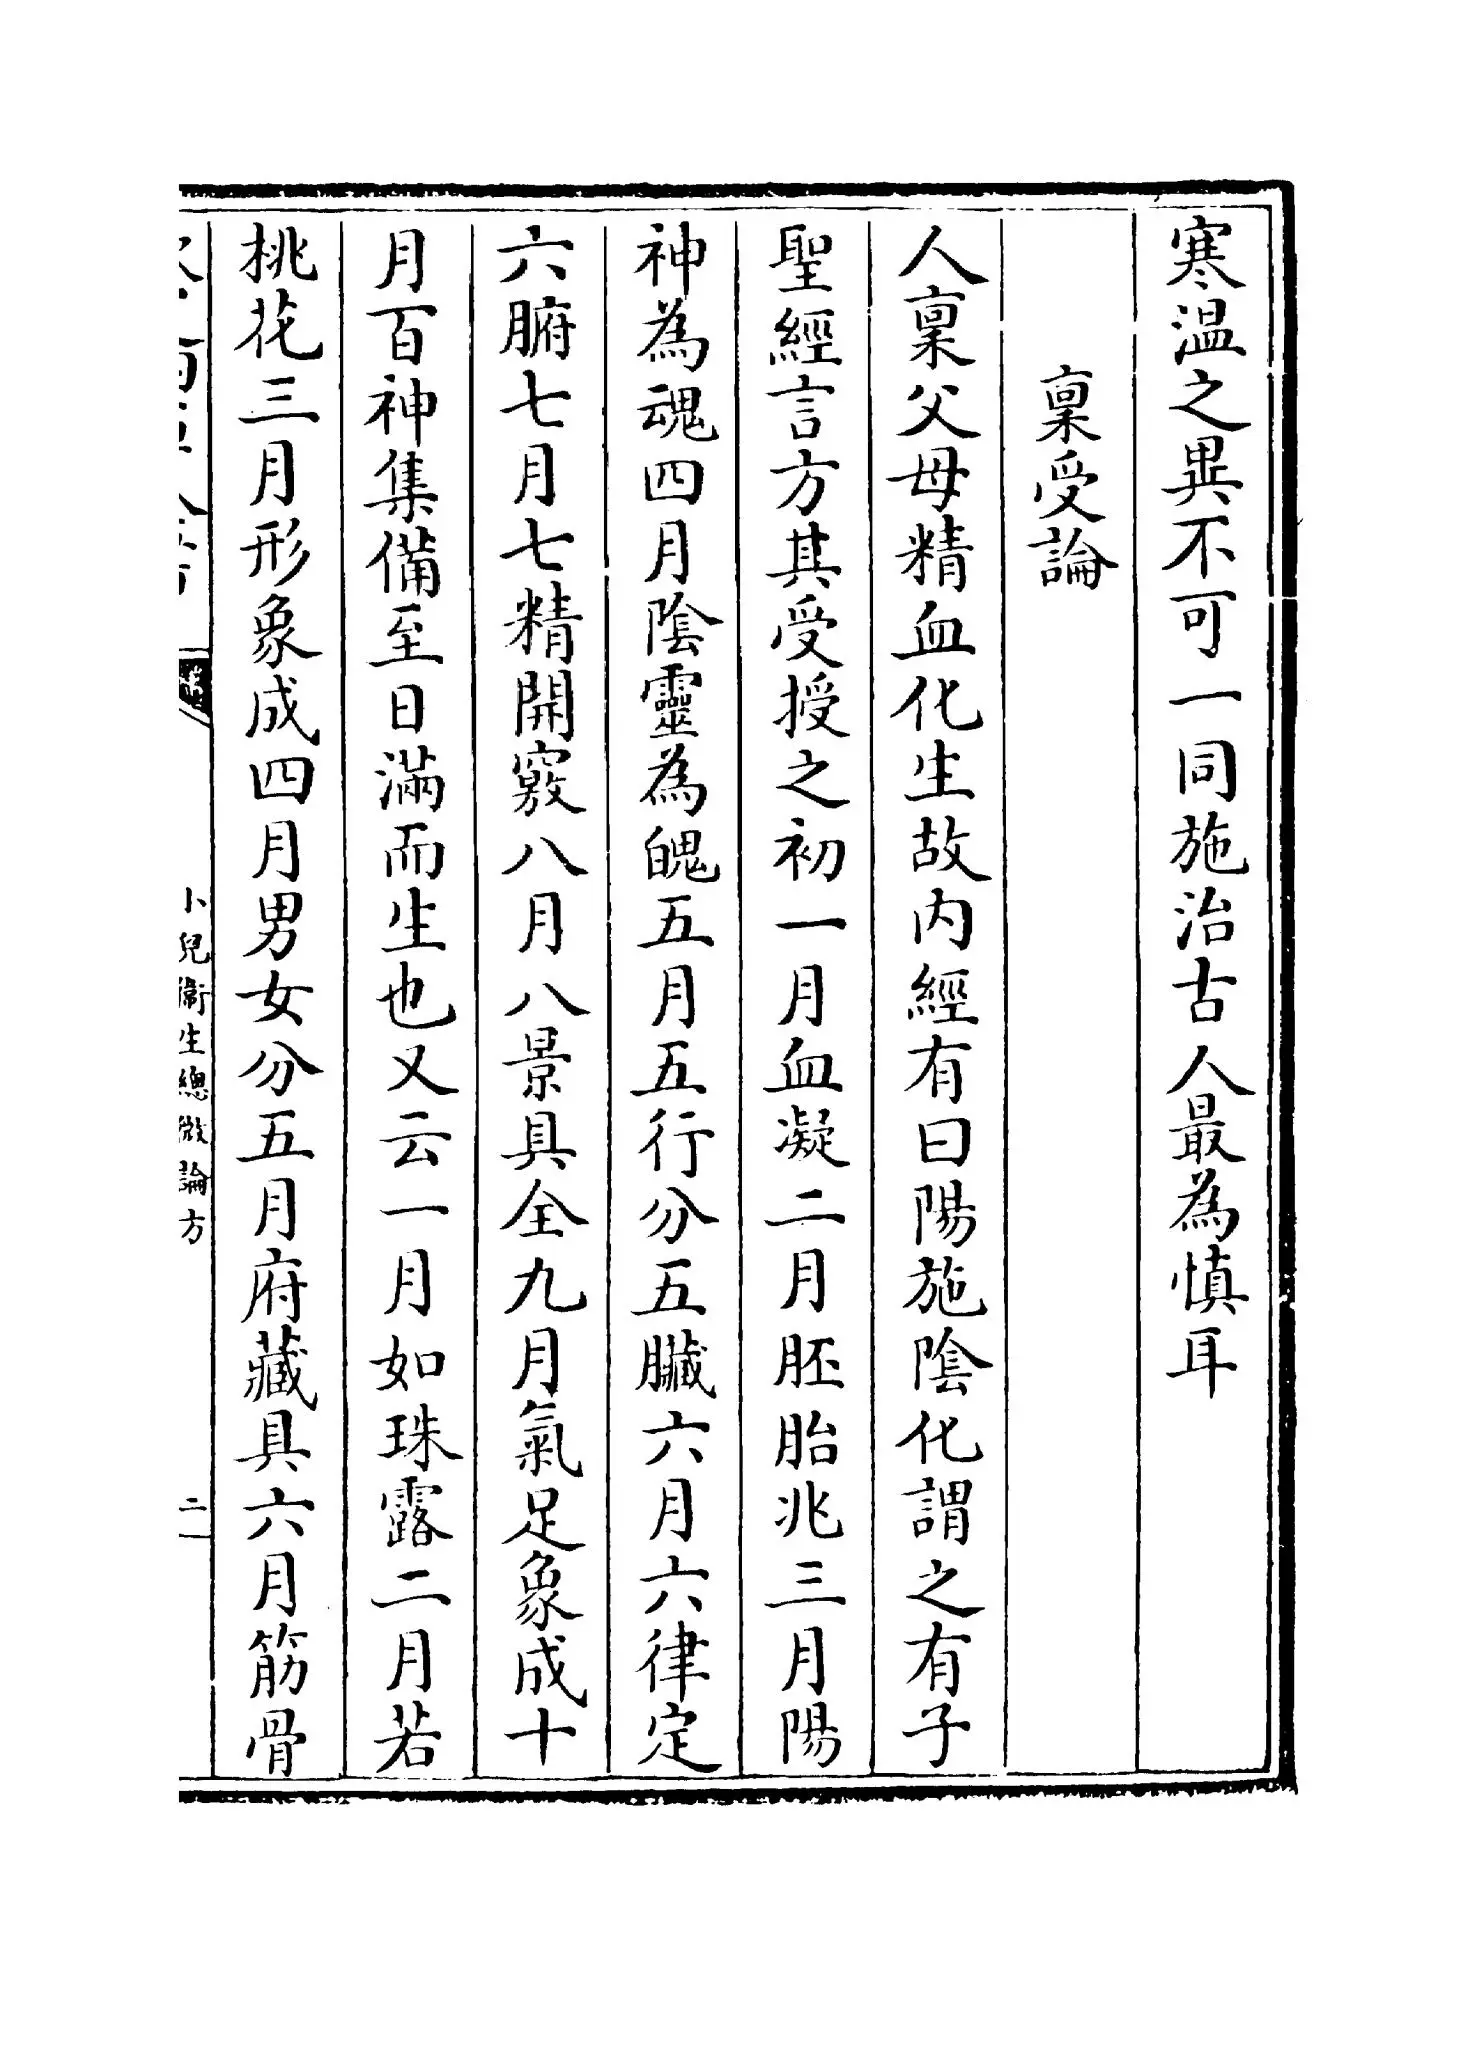 寒温之異不可一同施治古人最為慎耳
稟受論
人稟父母精血化生故内經有曰陽施陰化謂之有子
聖經言方其受授之初一月血凝二月胚胎兆三月陽
神為魂四月陰靈為魄五月五行分五臟六月六律定
六腑七月七精開竅八月八景具全九月氣足象成十
月百神集備至日滿而生也又云一月如珠露二月若
桃花三月形象成四月男女分五月府藏具六月筋骨
小兒衛生總微論方
二